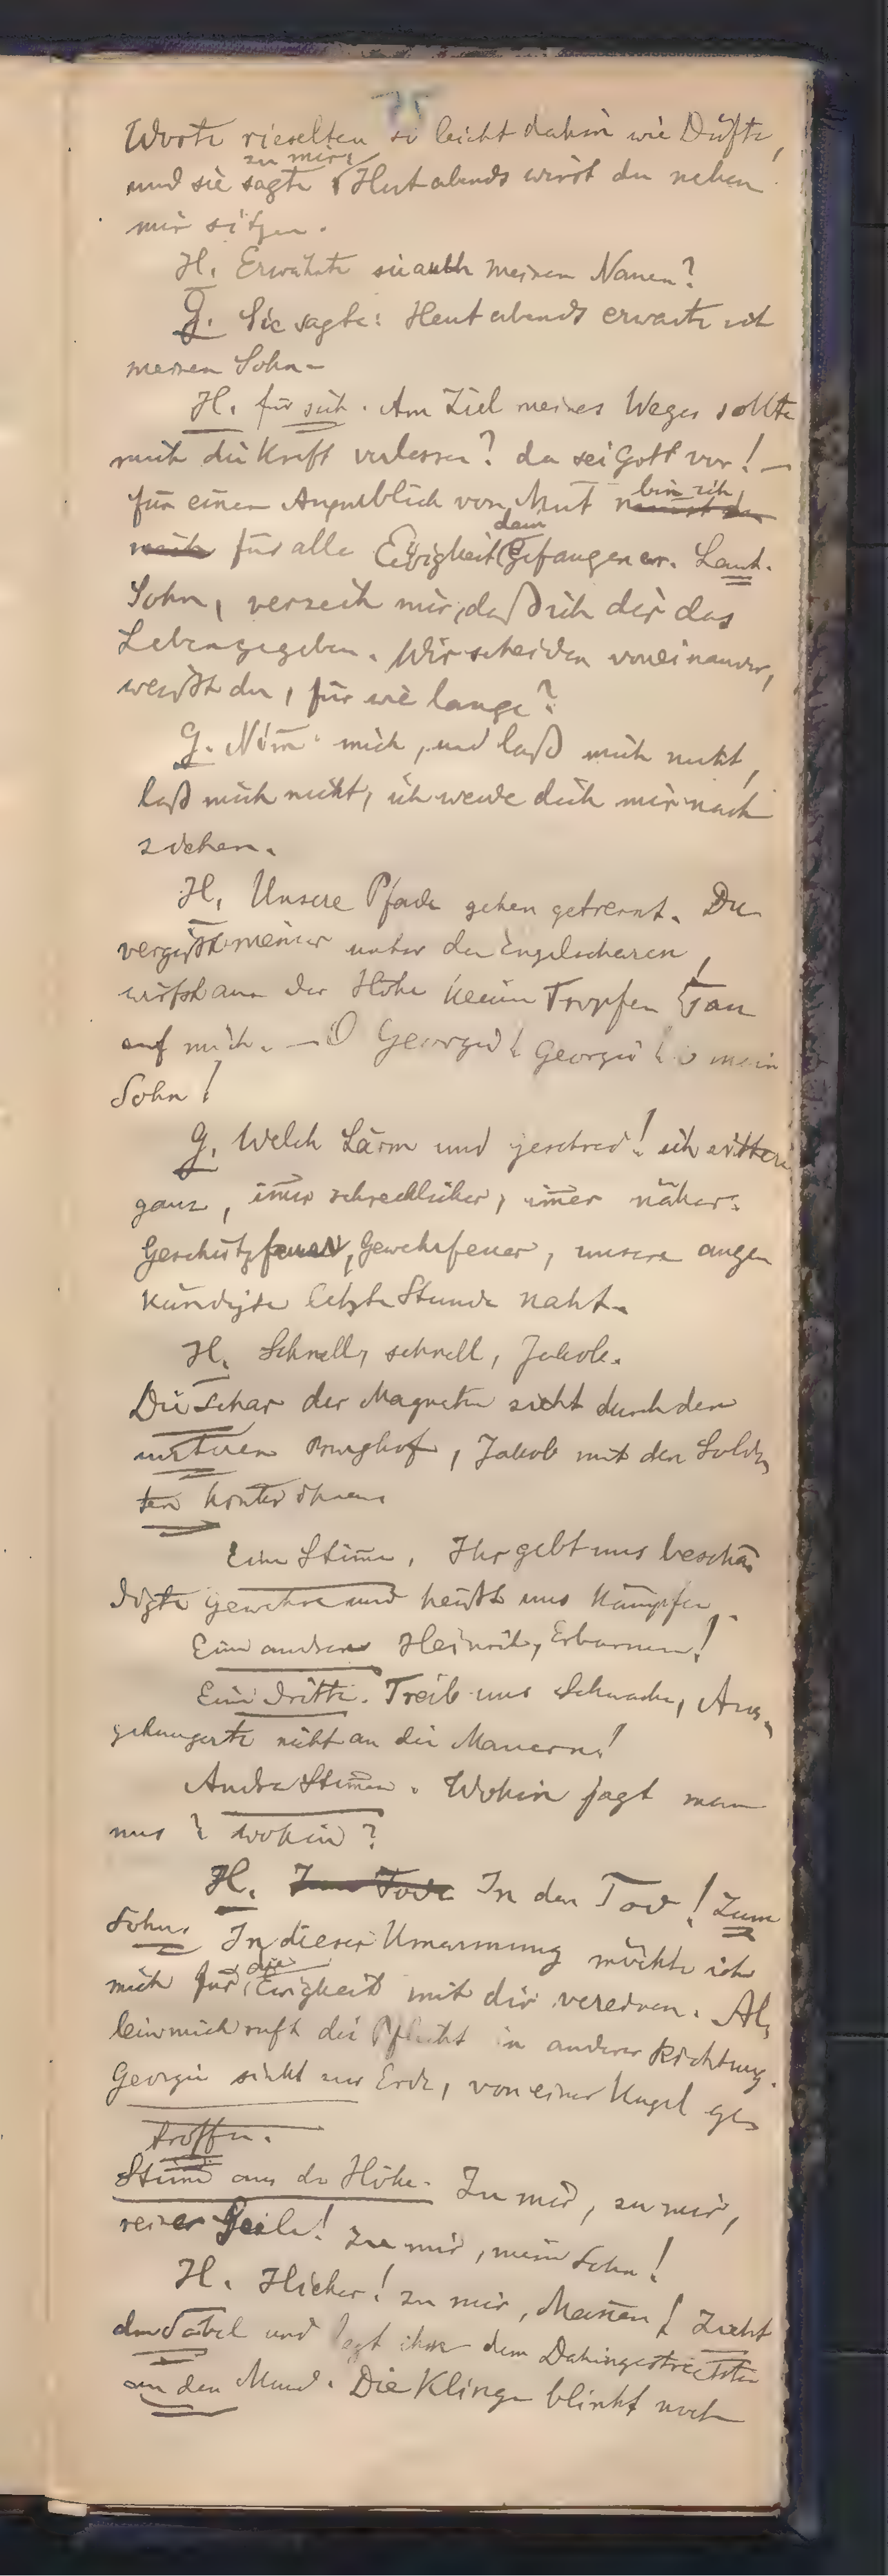 75
Worte rieselten so leicht dahin wie Düfte,
und sie sagte zu mir: Heut abends wirst du neben
mir sitzen.
H. Erwähnte sie auch meinen Namen?
G. Sie sagte: Heut abends erwarte ich
meinen Sohn –
H. für sich. Am Ziel meines Weges sollte
mich die Kraft verlassen? da sei Gott vor! –
für einen Augenblick von Mut bin ich
für alle Ewigkeit dein Gefangener. Laut.
Sohn, verzeih mir, daß ich dir das
Leben gegeben. Wir scheiden voneinander,
weißt du, für wie lange?
G. Nim̄ mich, und laß mich nicht,
laß mich nicht, ich werde dich mir nach
ziehen.
H. Unsere Pfade gehen getrennt. Du
vergißt meiner unter den Engelscharen,
wirfst aus der Höhe keinen Tropfen Tau
auf mich. – O Georgie! Georgie! o mein
Sohn!
G. Welch Lärm und geschrei! ich zittere
ganz, im̄er schrecklicher, im̄er näher.
Geschützfeuer, Gewehrfeuer, unsere ange
kündigte letzte Stunde naht.
H. Schnell, schnell, Jakob.
Die Schar der Magnaten zieht durch den
unteren Burghof, Jakob mit den Solda
ten hinter ihnen.
Eine Stim̄e. Ihr gebt uns beschä
digte Gewehre und heißt uns kämpfen.
Eine andere. Heinrich, Erbarmen!
Eine dritte. Treib uns Schwache, Aus
gehungerte nicht an die Mauern!
Andre Stim̄en. Wohin jagt man
uns? wohin?
H. Zum Tode In den Tod! Zum
Sohn. In dieser Umarmung möchte ich
mich für die Ewigkeit mit dir vereinen. Al
lein mich ruft die Pflicht in anderer Richtung.
Georgie sinkt zur Erde, von einer Kugel ge
troffen.
Stim̄e aus der Höhe. Zu mir, zu mir,
reiner Geist! zu mir, mein Sohn!
H. Hieher! zu mir, Mannen! Zieht
den Säbel und legt ihn dem Dahingestreckten
an den Mund. Die Klinge blinkt noch